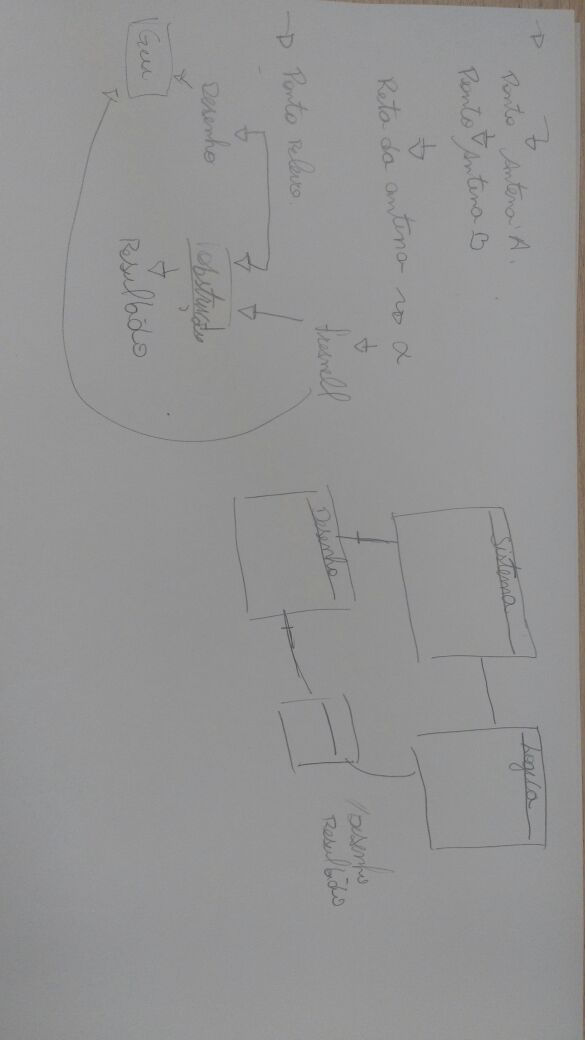 Ponto Antena A.
Ponto Antena B
Reta da antena α
fresnell
Ponto Relevo
Desenho
obstrução
Resultado
Sistema
Logica
Desenho
Desenho
Resultado